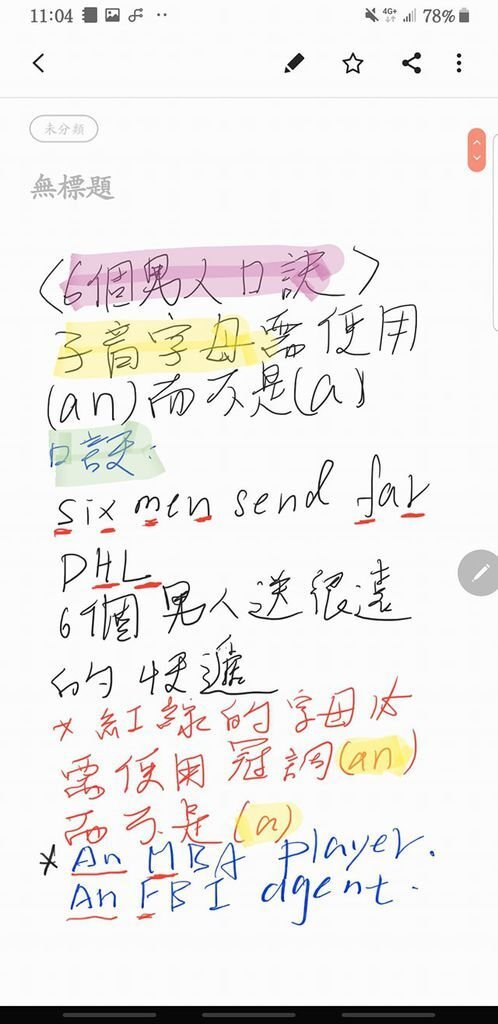 11:04 4G+ 78%
未分類
無標題
〈6個男人口訣〉
子音字母需使用
(an)而不是(a)
口訣:
six men send far
DHL
6個男人送很遠
的快遞
*紅線的字母必
需使用冠詞(an)
而不是(a)
*An MBA player.
An FBI agent.